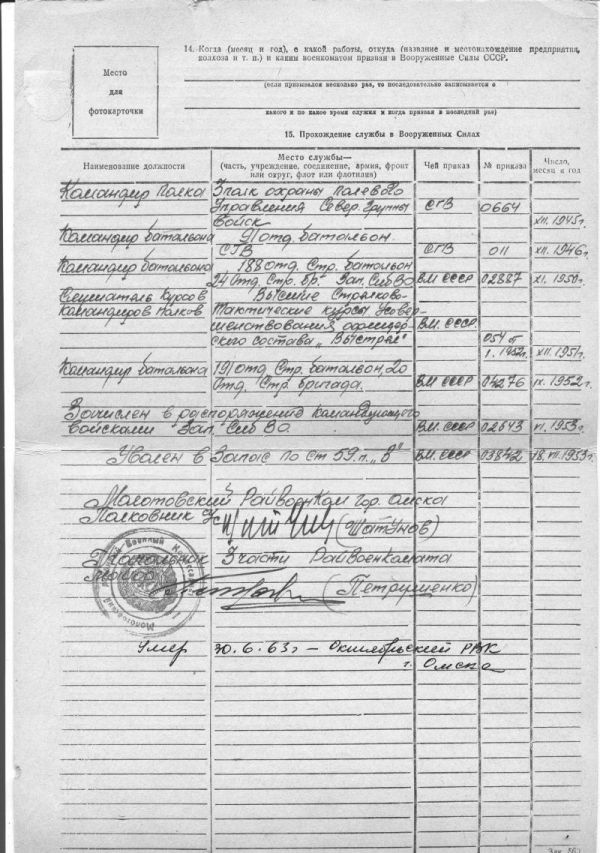 Место
для
фотокарточки
14. Когда (месяц и год), с какой работы, откуда (название и местонахождение предприятия,
колхоза и т. п.) и каким военкоматом призван в Вооруженные Силы СССР.
(если призывался несколько раз, то последовательно записывается с
какого и по какое время служил и когда призван в последний раз)
15. Прохождение службы в Вооруженных Силах
Наименование должности
Место службы—
(часть, учреждение, соединение, армия, фронт
или округ, флот или флотилия)
Чей приказ
№ приказа
Число,
месяц и год
Командир полка 3 полк охраны полевого
Управления Север. Группы СГВ 0664
Войск XII. 1945 г.
Командир батальона 91 отд. батальон.
СГВ СГВ 011 XII. 1946 г.
Командир батальона 188 отд. Стр. батальон
24 отд. Стр. бр. Зап. СибВО ВМ СССР 02887 XI. 1950 г.
Слушатель Курсов Высшие Стрелково-
Командиров полков Тактические курсы Усовер-
шенствования офицер- В.М. СССР
ского состава „Выстрел" 054 от
1. 1952 г. XII. 1951 г.
Командир батальона 191 отд. Стр. батальон, 20
отд. Стр. бригада. ВМ СССР 04276 IX. 1952 г.
Зачислен в распоряжение Командующего
войсками Зап. Сиб ВО. В.М. СССР 02643 1953 г.
Уволен в Запас по ст 59 п. „В" ВМ СССР 03842 18. VII. 1953 г.
Молотовский Райвоенком гор. Омска
Полковник (Шатунов)
Начальник 3 части Райвоенкомата
Майор (Петрушенко)
Умер 30.6.63 г – Октябрьский РВК
г. Омска